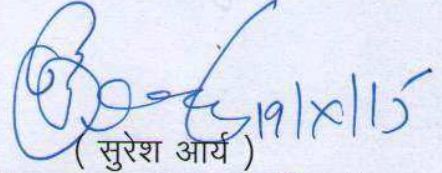 19/x/15
( सुरेश आर्य )